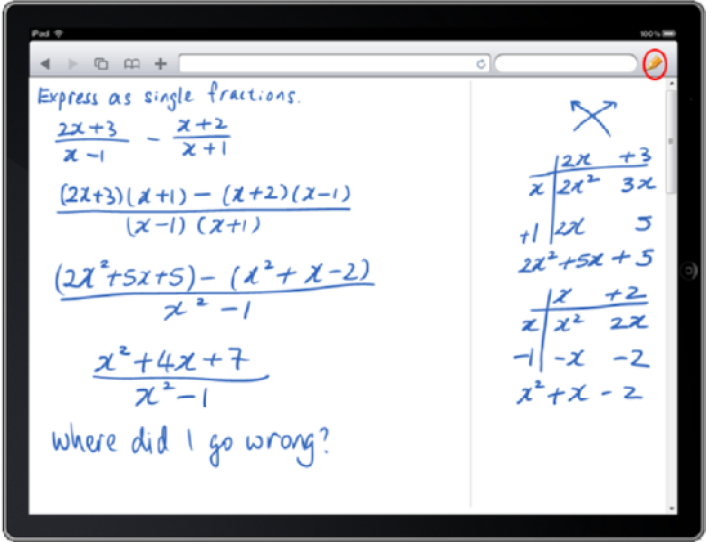 iPad 100%
Express as single fractions.
(2x+3)/(x-1) - (x+2)/(x+1)
((2x+3)(x+1) - (x+2)(x-1))/((x-1)(x+1))
((2x²+5x+5) - (x²+x-2))/(x²-1)
(x²+4x+7)/(x²-1)
where did I go wrong?
2x +3
x 2x² 3x
+1 2x 5
2x²+5x+5
x +2
x x² 2x
-1 -x -2
x²+x-2